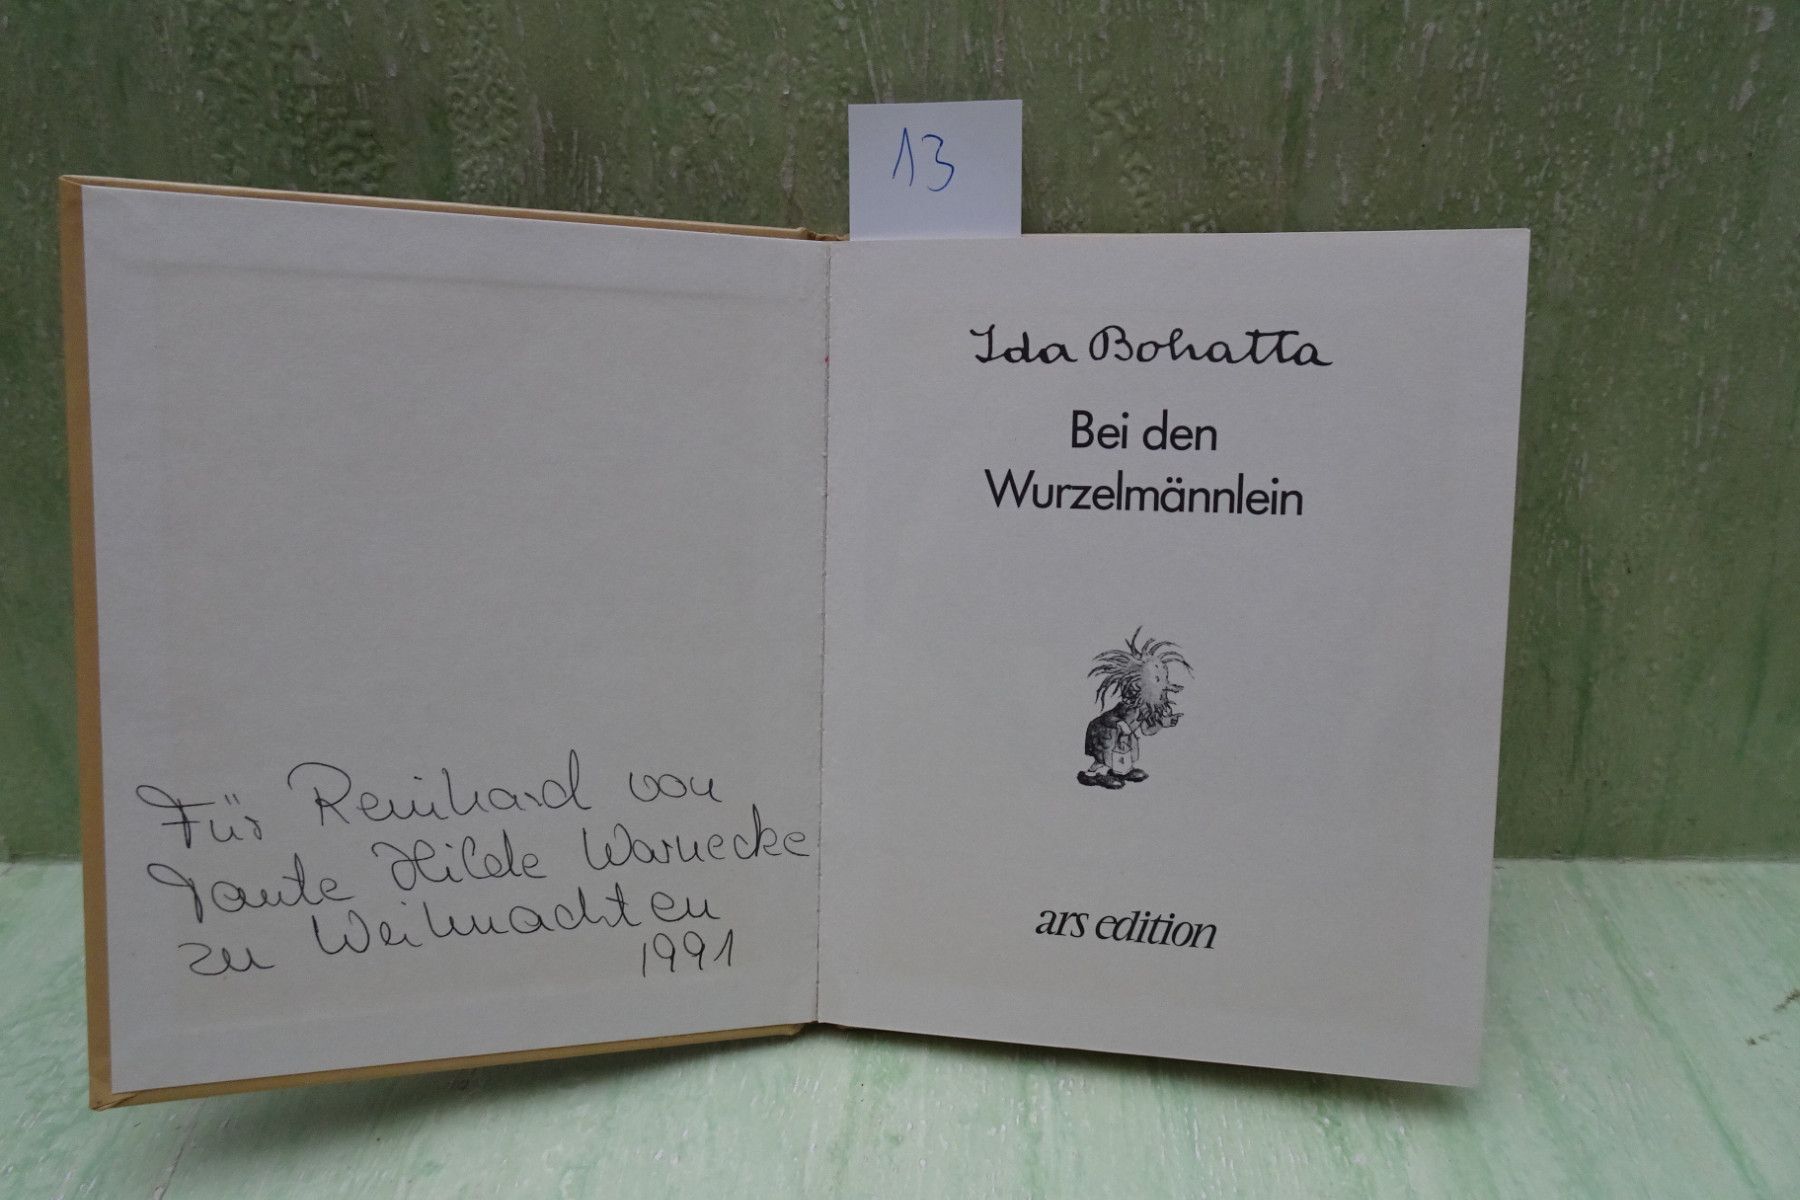 13
Für Reinhard von
Tante Hilde Warnecke
zu Weihnachten
1991
Ida Bohatta
Bei den
Wurzelmännlein
ars edition